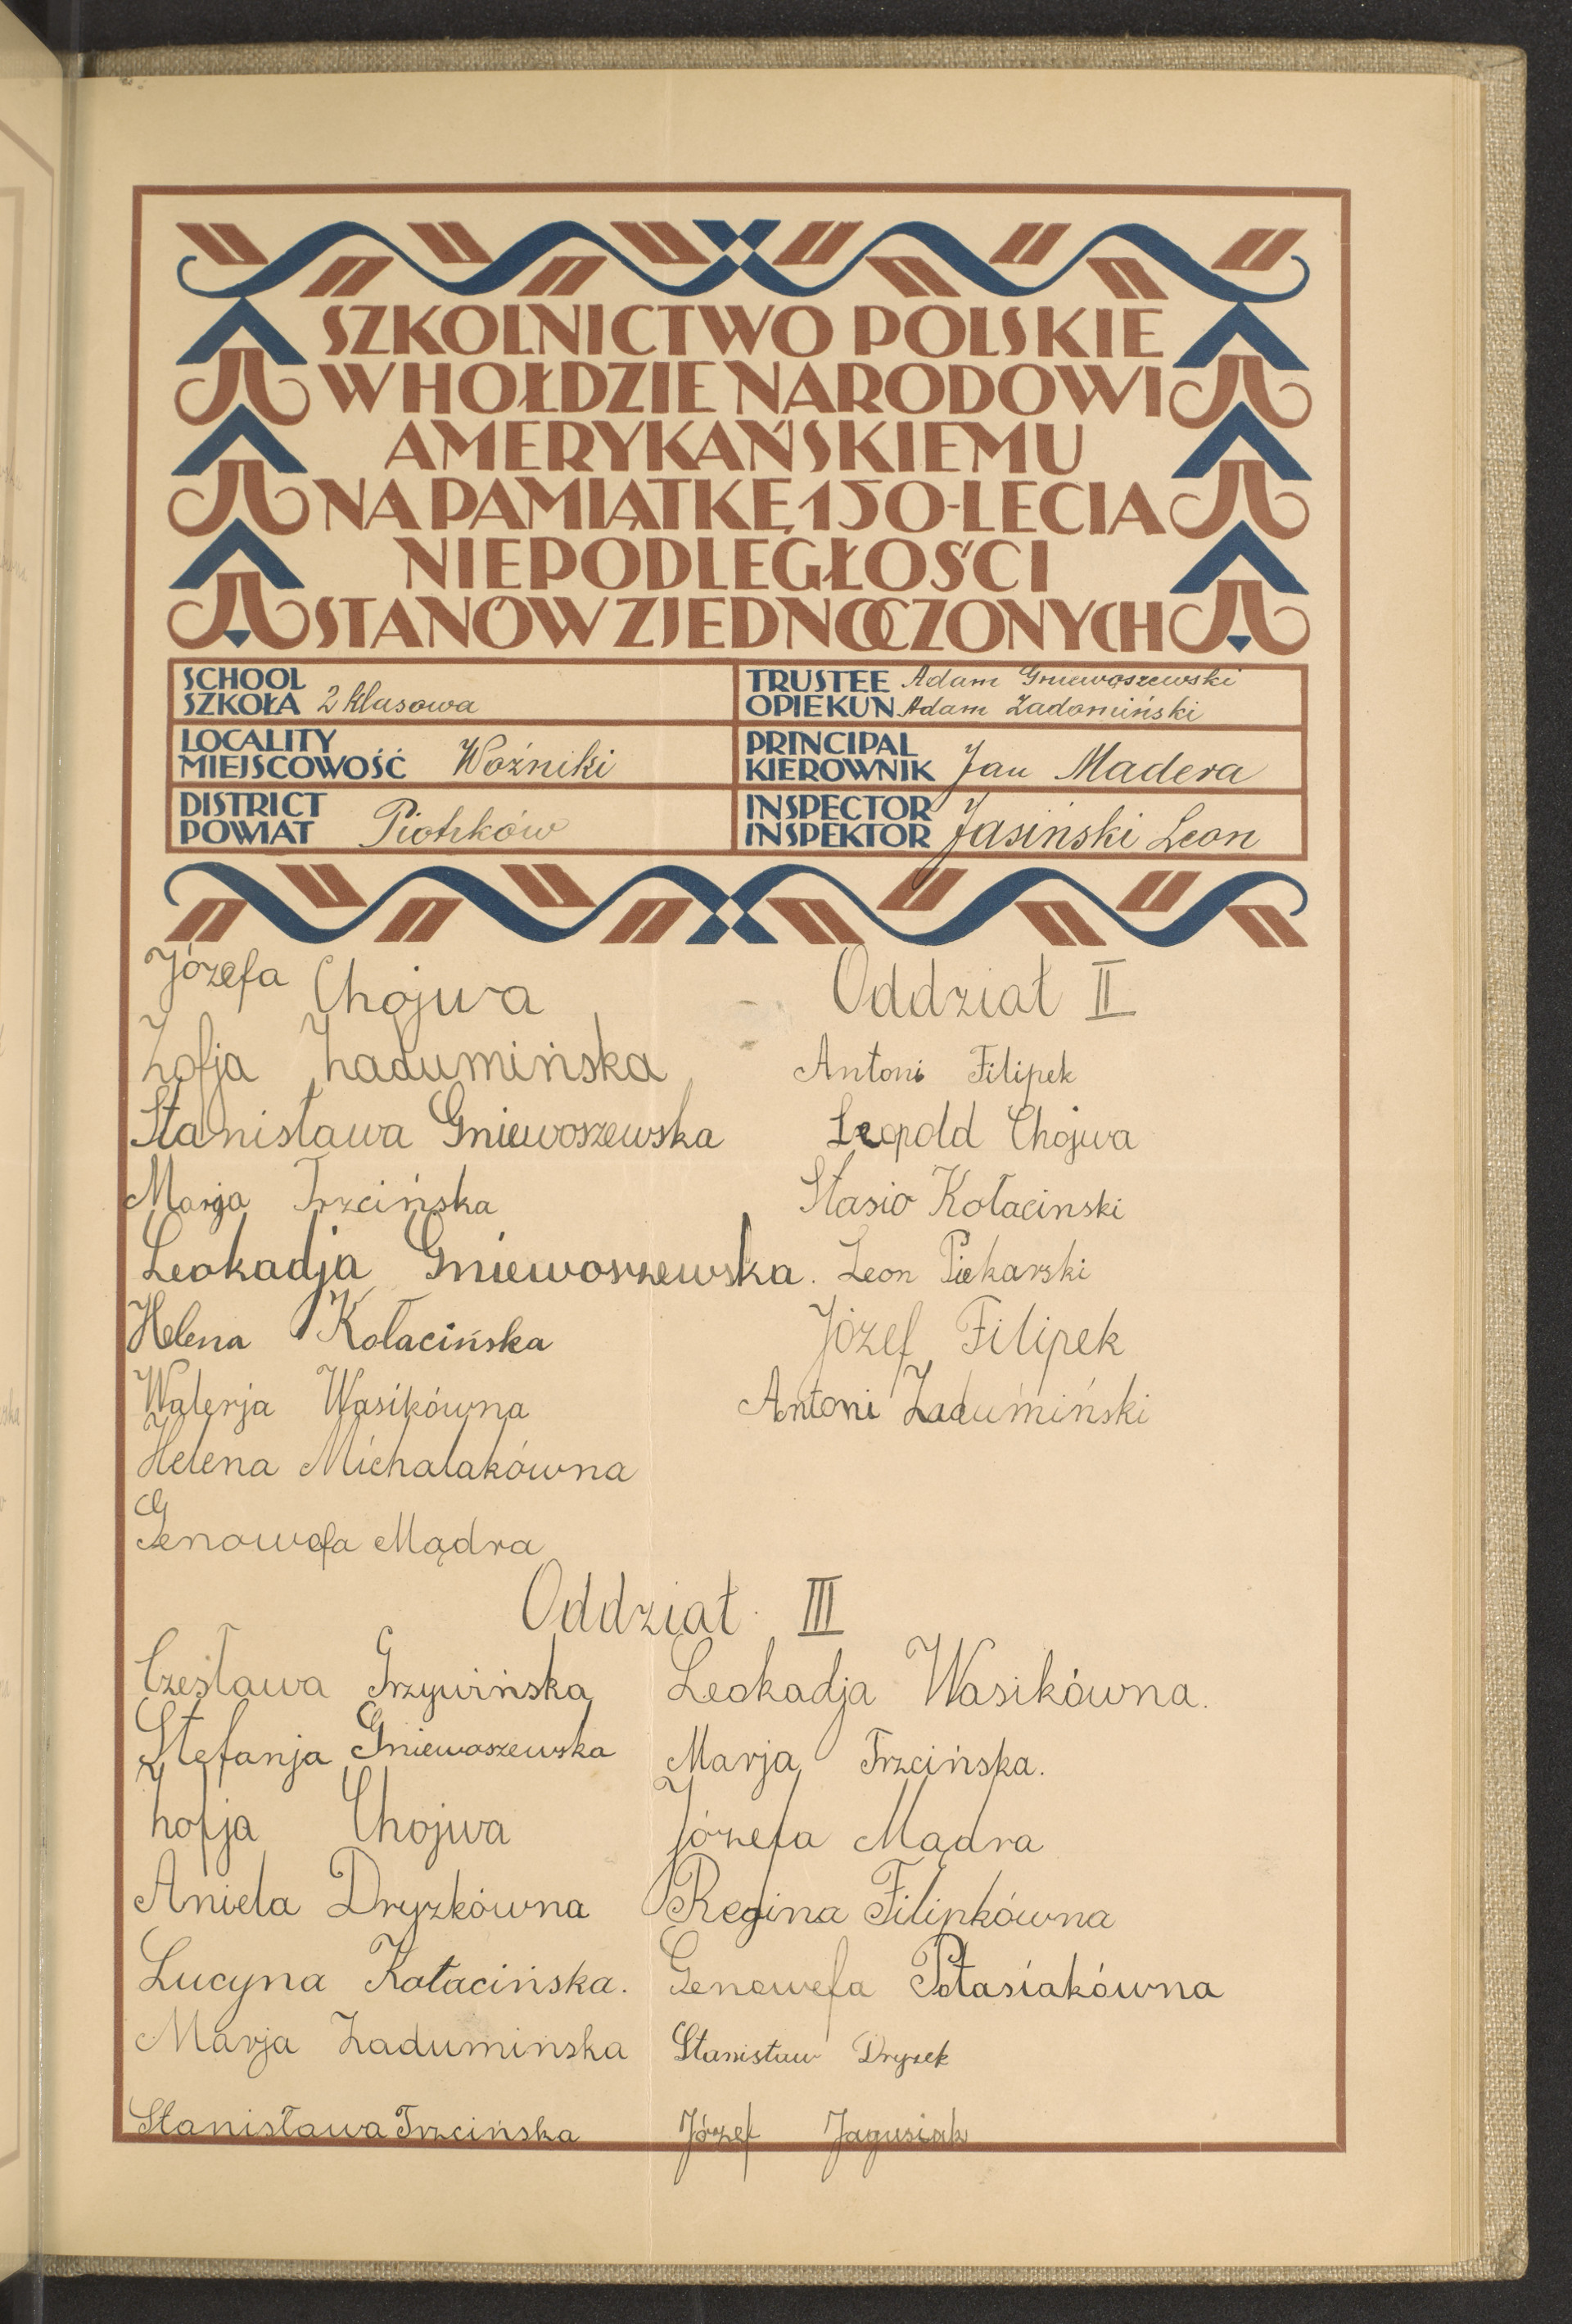 SZKOLNICTWO POLSKIE
W HOŁDZIE NARODOWI
AMERYKAŃSKIEMU
NA PAMIĄTKĘ 150-LECIA
NIEPODLEGŁOŚCI
STANÓW ZJEDNOCZONYCH
SCHOOL
SZKOŁA 2 klasowa
LOCALITY
MIEJSCOWOŚĆ Woźniki
DISTRICT
POWIAT Piotrków
TRUSTEE Adam Gniewoszewski
OPIEKUN Adam Zadomiński
PRINCIPAL
KIEROWNIK Jan Madera
INSPECTOR
INSPEKTOR Jasiński Leon
Józefa Chojwa
Zofja Zadumińska
Stanisława Gniewoszewska
Marja Trzcińska
Leokadja Gniewoszewska.
Helena Kołacińska
Walerja Wasikówna
Helena Michalakówna
Genowefa Mądra
Oddział II
Antoni Filipek
Leopold Chojwa
Stasio Kołacinski
Leon Piekarski
Józef Filipek
Antoni Zadumiński
Oddział III
Czesława Grzywińska
Stefanja Gniewoszewska
Zofja Chojwa
Aniela Dryzkówna
Lucyna Kołacińska.
Marja Zaduminska
Stanisława Trzcińska
Leokadja Wasikówna.
Marja Trzcińska.
Józefa Mądra
Regina Filipkówna
Genowefa Ptasiakówna
Stanisław Dryzek
Józef Jagusiak